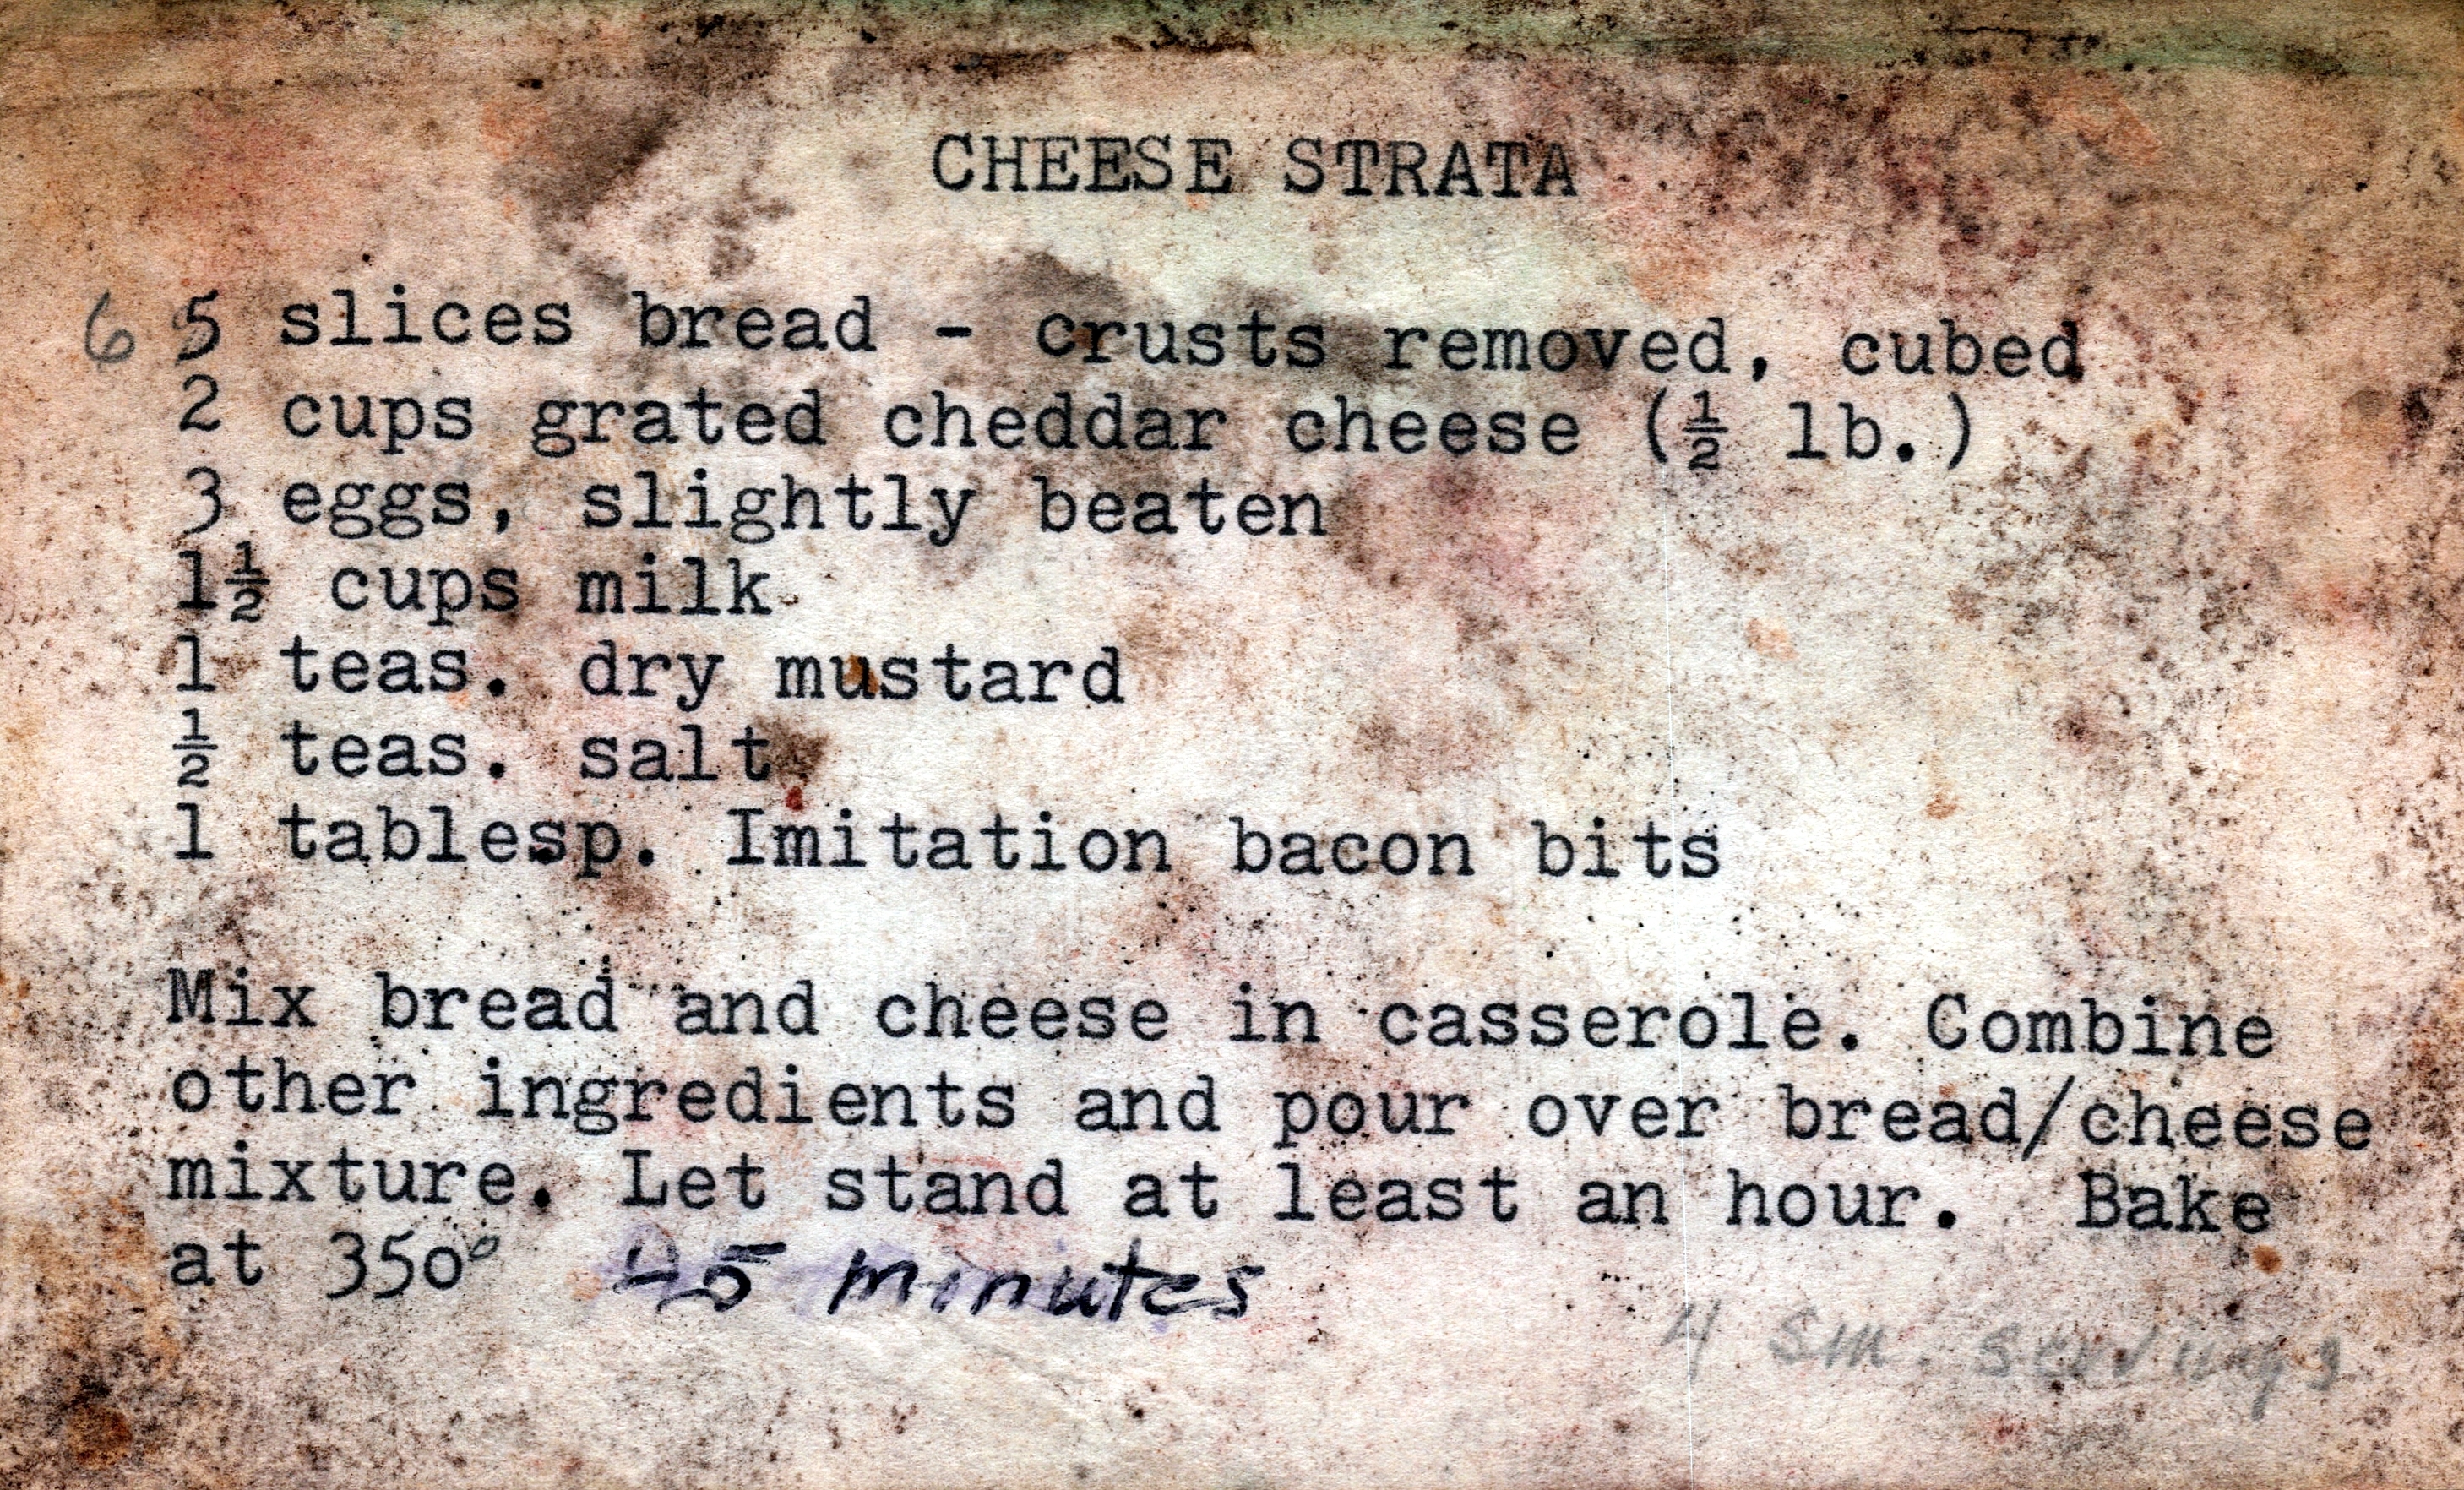 CHEESE STRATA
6 5 slices bread - crusts removed, cubed
2 cups grated cheddar cheese (½ lb.)
3 eggs, slightly beaten
1½ cups milk
1 teas. dry mustard
½ teas. salt
1 tablesp. Imitation bacon bits
Mix bread and cheese in casserole. Combine
other ingredients and pour over bread/cheese
mixture. Let stand at least an hour. Bake
at 350° 45 minutes
4 sm. servings